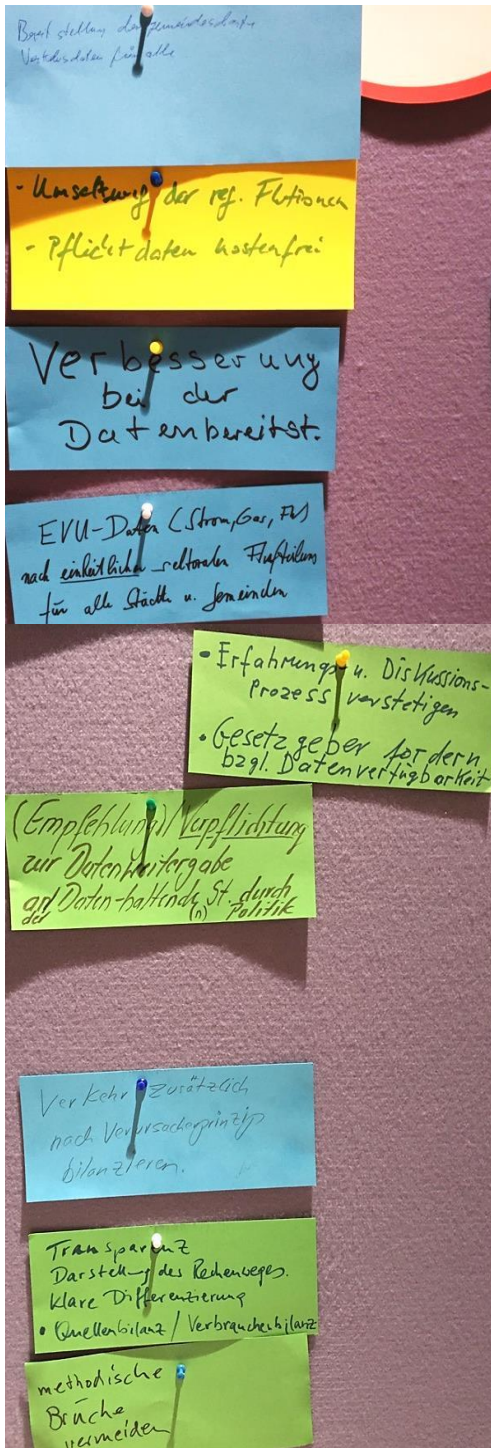 Bereitstellung der gemeindescharfen
Verkehrsdaten für alle
- Umsetzung der reg.
- Pflichtdaten kostenfrei
Verbesserung
bei der
Datenbereitst.
EVU-Daten (Strom, Gas, FW)
nach einheitlicher sektoralen Aufteilung
für alle Städte u. Gemeinden
• Erfahrungs- u. Diskussions-
Prozess verstetigen
• Gesetzgeber fordern
bzgl. Datenverfügbarkeit
(Empfehlung)/Verpflichtung
zur Datenweitergabe
an Daten-haltende St. durch
der (n) Politik
Verkehr zusätzlich
nach Verursacherprinzip
bilanzieren.
Transparenz
Darstellung des Rechenweges.
Klare Differenzierung
• Quellenbilanz / Verbraucherbilanz
methodische
Brüche
vermeiden